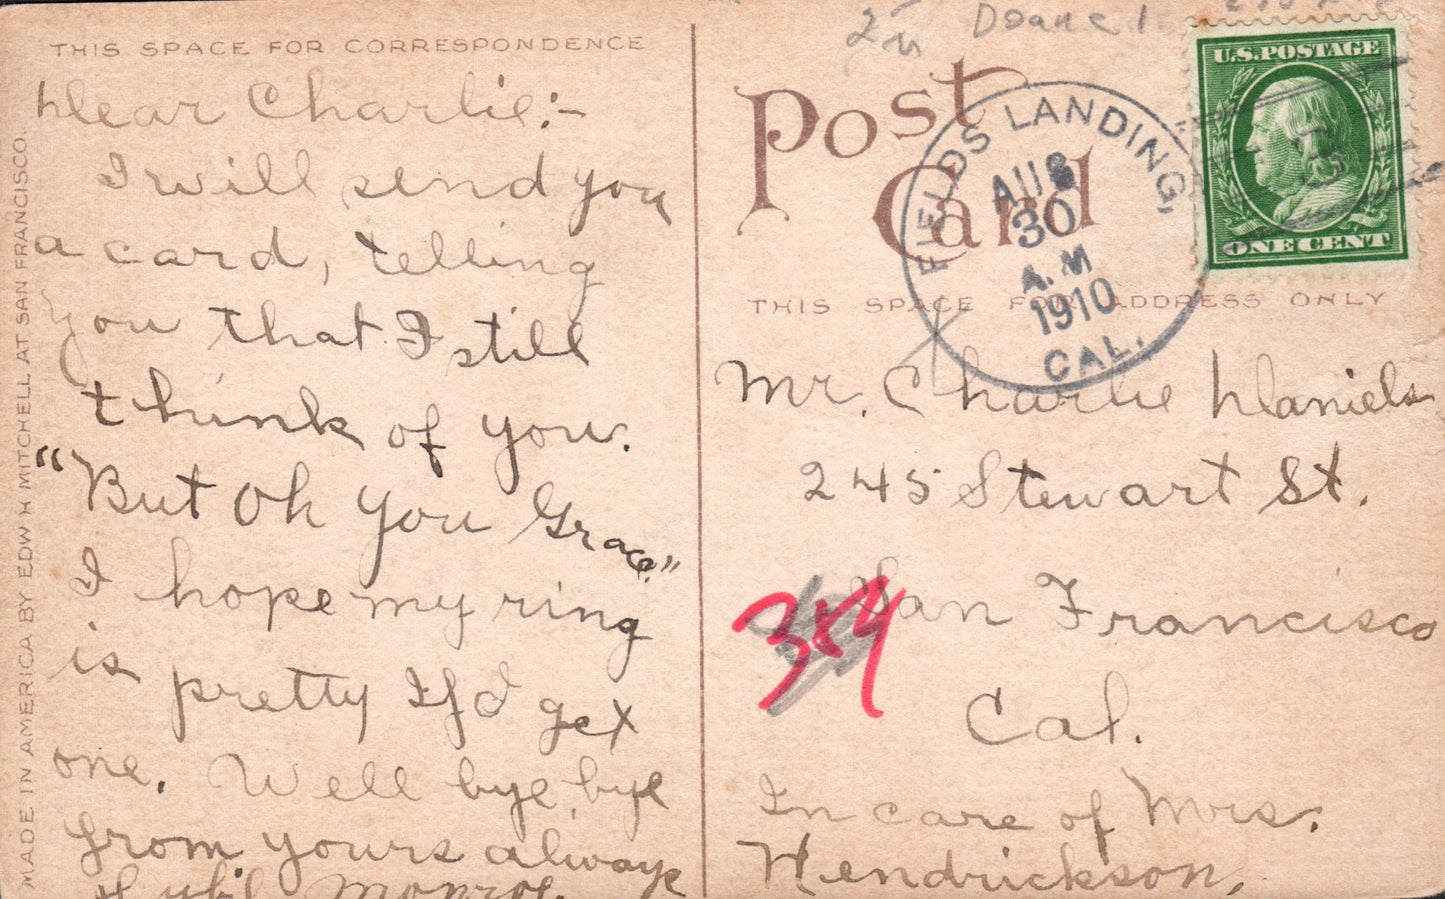 THIS SPACE FOR CORRESPONDENCE
Dear Charlie:-
I will send you
a card, telling
you that I still
think of you.
"But Oh you Grace."
I hope my ring
is pretty If I get
one. Well bye, bye
from yours always
Sybil Monroe.
MADE IN AMERICA BY EDW H MITCHELL AT SAN FRANCISCO.
Doane
Post
Card
U.S. POSTAGE
ONE CENT
FIELDS LANDING,
AUG
30
A.M
1910
CAL.
THIS SPACE FOR ADDRESS ONLY
Mr. Charlie Daniels
245 Stewart St.
San Francisco
Cal.
In care of Mrs.
Hendrickson,